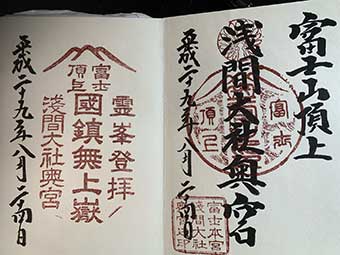 富士山頂上
浅間大社奥宮
平成二十九年八月二十四日
富士
頂上
富士山本宮
浅間大社
霊峯登拝
富士
頂上
國鎮無上嶽
浅間大社奥宮
平成二十九年八月二十四日